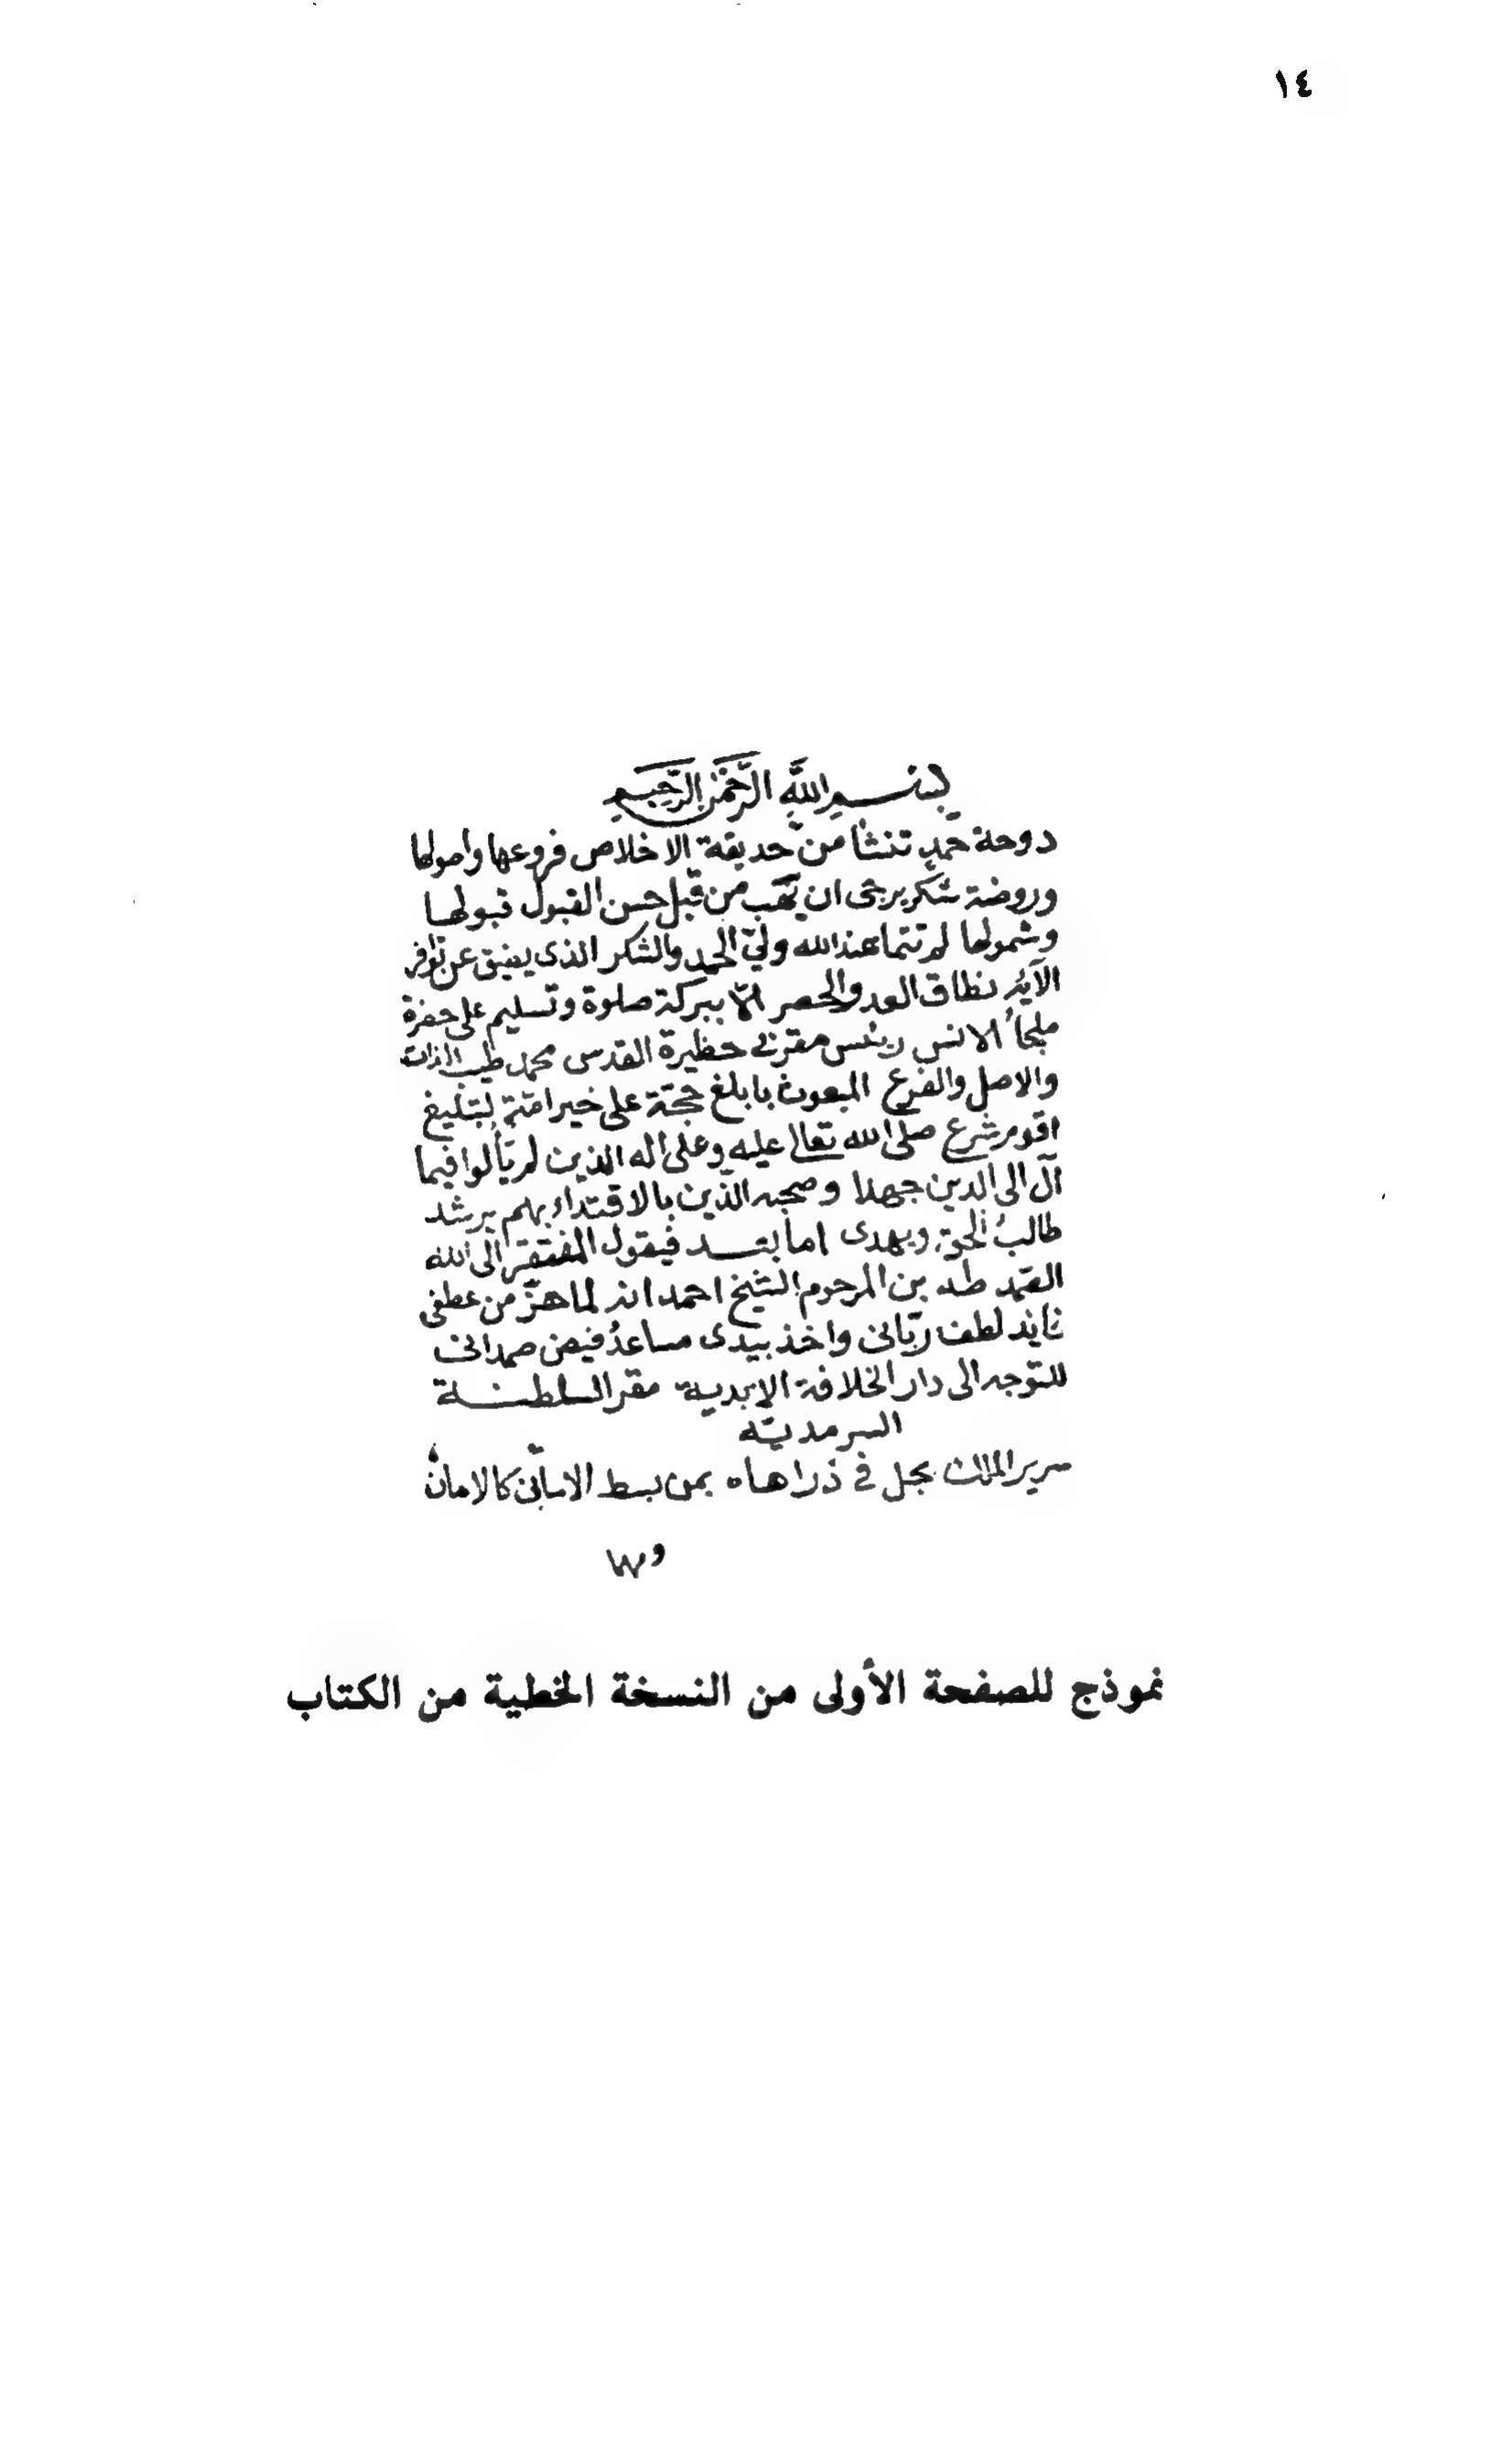 ١٤
بسم الله الرحمن الرحيم
دوحة حمد تنشأ من حديقة الاخلاص فروعها واصولها
وروضة شكر يرجى ان تهب من قبل حسن القبول قبولها
وشمولها لم تنما عند الله ولي الحمد والشكر الذي يضيق عن توافر
الآئه نطاق العد والحصر الا ببركة صلوة وتسليم على حضرة
ملجأ الانس رئيس مقربي حظيرة القدس محمد طيب الذات
والاصل والفرع المبعوث بابلغ حجة على خير امة بتبليغ
اقوم شرع صلى الله تعالى عليه وعلى اله الذين لم يألوا فيما
آل الى الدين جهدا وصحبه الذين بالاقتداء بهم يرشد
طالب الحق ويهدى اما بعد فيقول المفتقر الى الله
الصمد طه بن المرحوم الشيخ احمد انه لما هز من عطفي
لطف رباني واخذ بيدى مساعد فيض صمداني
للتوجه الى دار الخلافة الابدية مقر السلطنة
السرمدية
سرير الملك في ذراها بمن بسط الاماني كالامان
وبها
نموذج للصفحة الأولى من النسخة الخطية من الكتاب